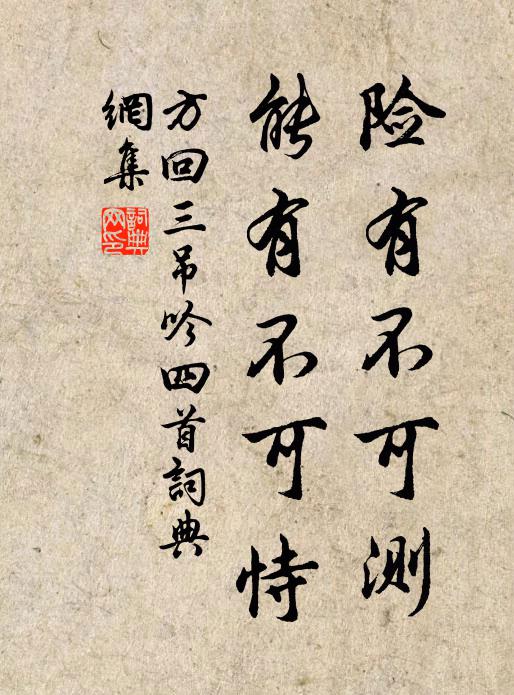 险有不可测
能有不可恃
方回三吊吟四首詞典
網集
詞典
网印